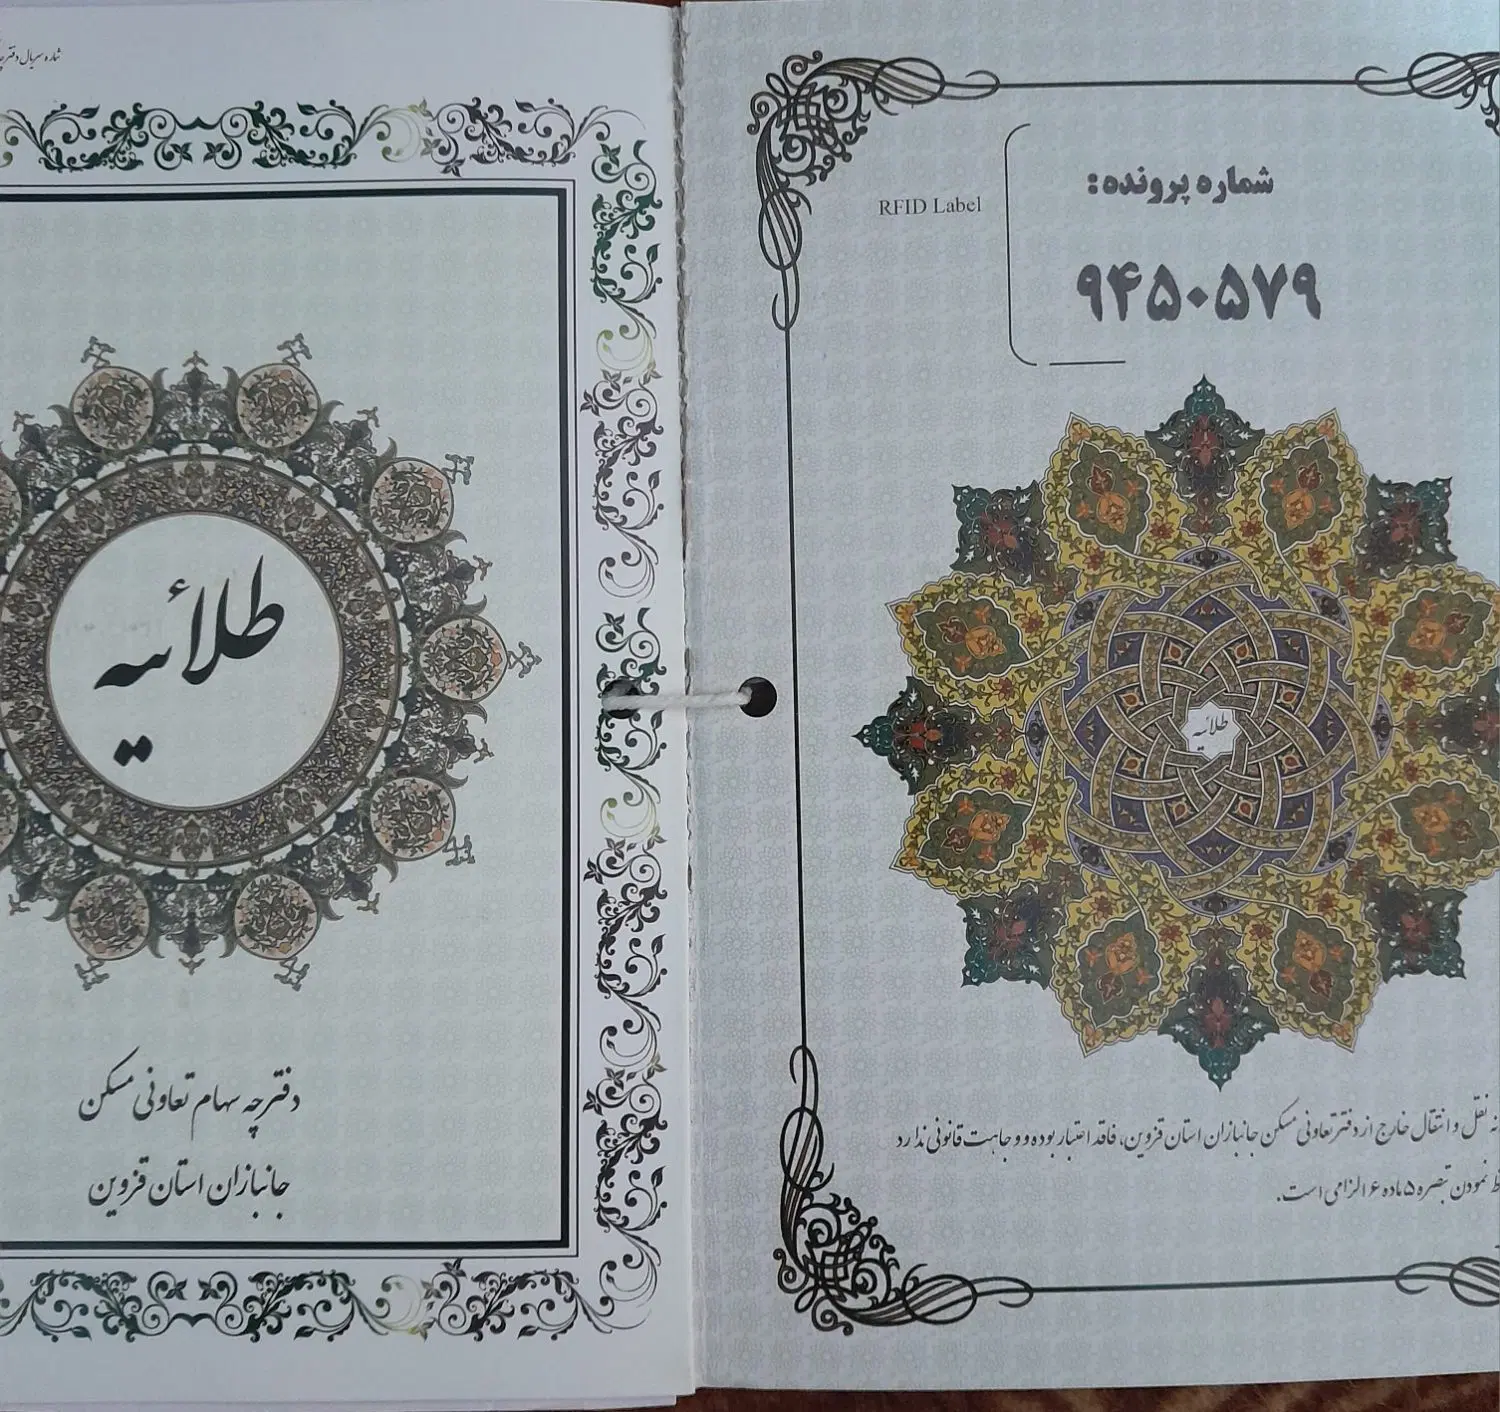 شماره سریال دفترچه
طلائیه
دفترچه سهام تعاونی مسکن
جانبازان استان قزوین
شماره پرونده:
RFID Label
۹۴۵۰۵۷۹
طلائیه
نقل و انتقال خارج از دفتر تعاونی مسکن جانبازان استان قزوین، فاقد اعتبار بوده و وجاهت قانونی ندارد
نمودن تبصره ۵ ماده ۶ الزامی است.